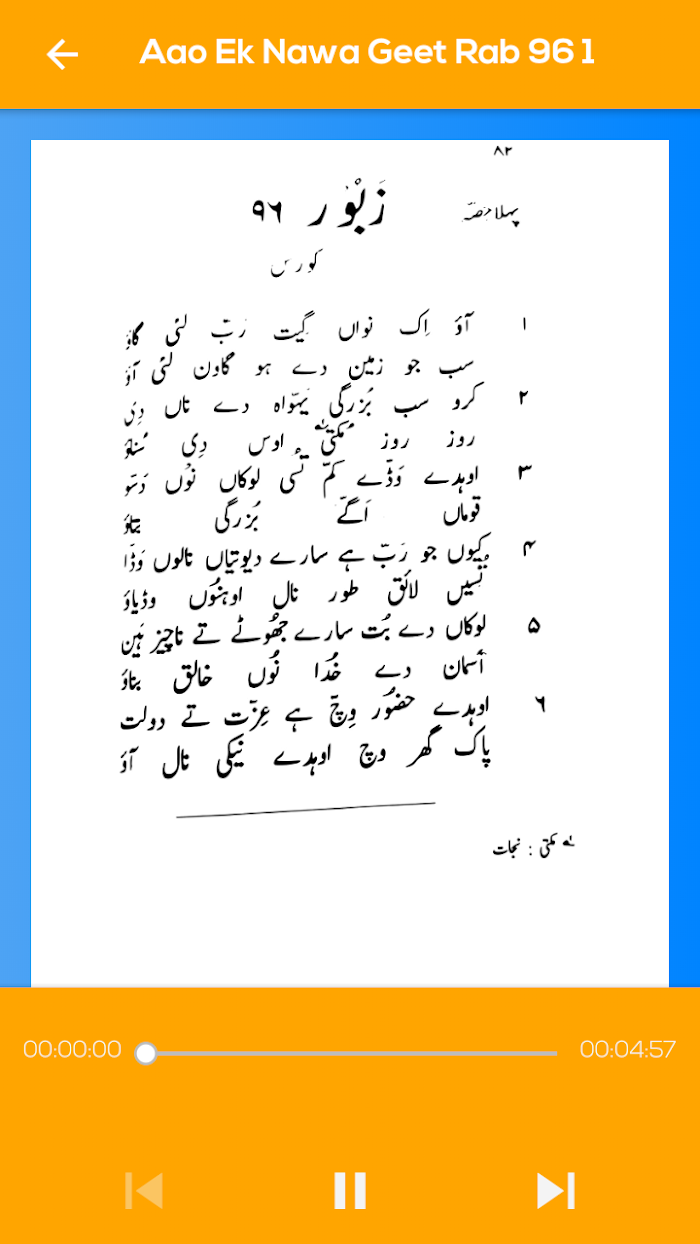 Aao Ek Nawa Geet Rab 96 1
۸۲
پہلا حصّہ
زَبُوْر ۹۶
کورس
۱ آؤ اِک نواں گیت رَبّ لئی گاؤ
سب جو زمین دے ہو گاون لئی آؤ
۲ کرو سب بُزرگی یَہوّاہ دے ناں دِی
روز روز مُکتی؂ اوس دِی سُناؤ
۳ اوہدے وَڈّے کمّ تُسی لوکاں نُوں دَسّو
قوماں اَگّے بُزرگی بتاؤ
۴ کیوں جو رَبّ ہے سارے دیوتیاں نالوں وَڈّا
تُسیں لائق طور نال اوہنُوں وڈیاؤ
۵ لوکاں دے بُت سارے جھُوٹے تے ناچیز ہَین
اَسمان دے خُدا نُوں خالق بناؤ
۶ اوہدے حضُور وِچّ ہے عِزّت تے دولت
پاک گھر وچ اوہدے نیکی نال آؤ
؂ مکتی : نجات
00:00:00
00:04:57